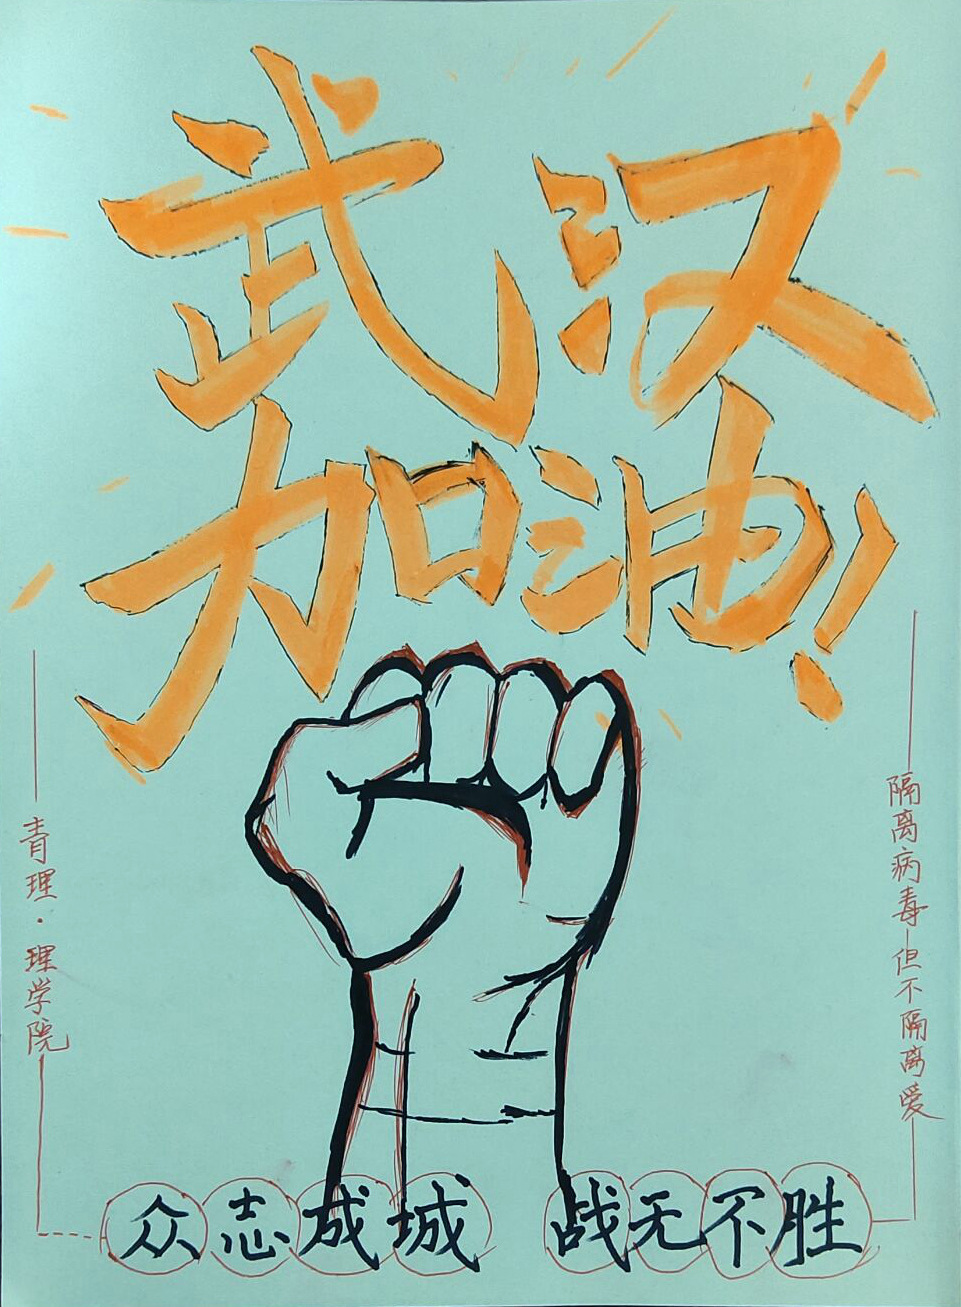 武汉
加油!
青理·理学院
隔离病毒但不隔离爱
众志成城 战无不胜